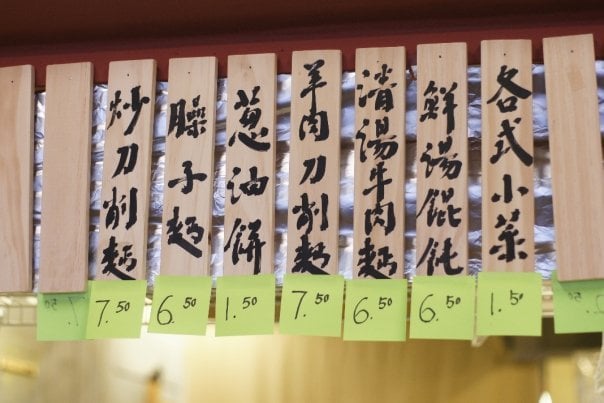 炒刀削麵
7.50
臊子麵
6.50
蔥油餅
1.50
羊肉刀削麵
7.50
清湯牛肉麵
6.50
鮮湯餛飩
6.50
各式小菜
1.50